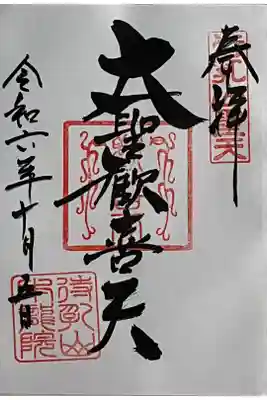 奉拝
大聖歓喜天
令和六年十月五日
待乳山
本龍院